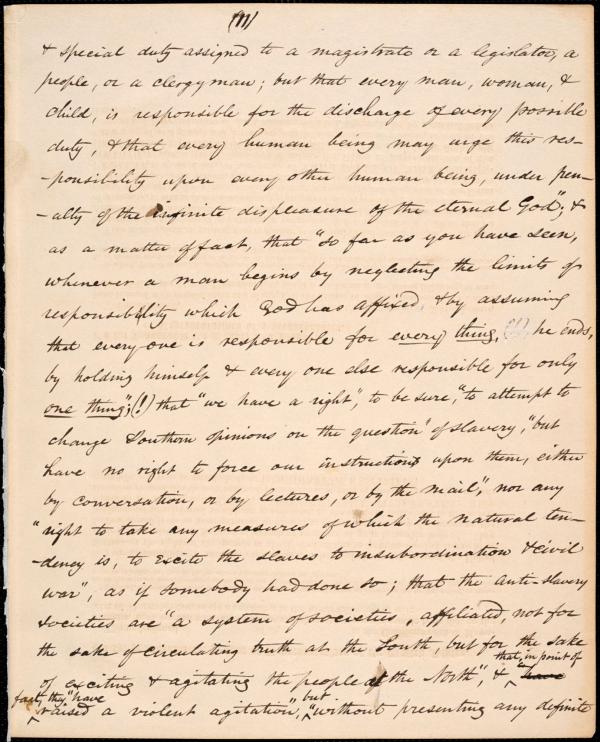 (11)
& special duty assigned to a magistrate or a legislator, a
people, or a clergyman; but that every man, woman, &
child, is responsible for the discharge of every possible
duty, & that every human being may urge this res-
-ponsibility upon every other human being, under pen-
-alty of the infinite displeasure of the eternal God"; &
as a matter of fact, that "so far as you have seen,
whenever a man begins by neglecting the limits of
responsibility which God has affixed, & by assuming
that every one is responsible for every thing, (!) he ends,
by holding himself & every one else responsible for only
one thing"; (!) that "we have a right", to be sure, "to attempt to
change Southern opinions on the question" of slavery, "but
have no right to force our instructions upon them, either
by conversation, or by lectures, or by the mail", nor any
"right to take any measures of which the natural ten-
-dency is, to excite the slaves to insubordination & civil
war", as if somebody had done so; that the anti-slavery
societies are "a system of societies, affiliated, not for
the sake of circulating truth at the South, but for the sake
of exciting & agitating the people at the North", & that, in point of "have
fact, they "have raised a violent agitation", but "without presenting any definite